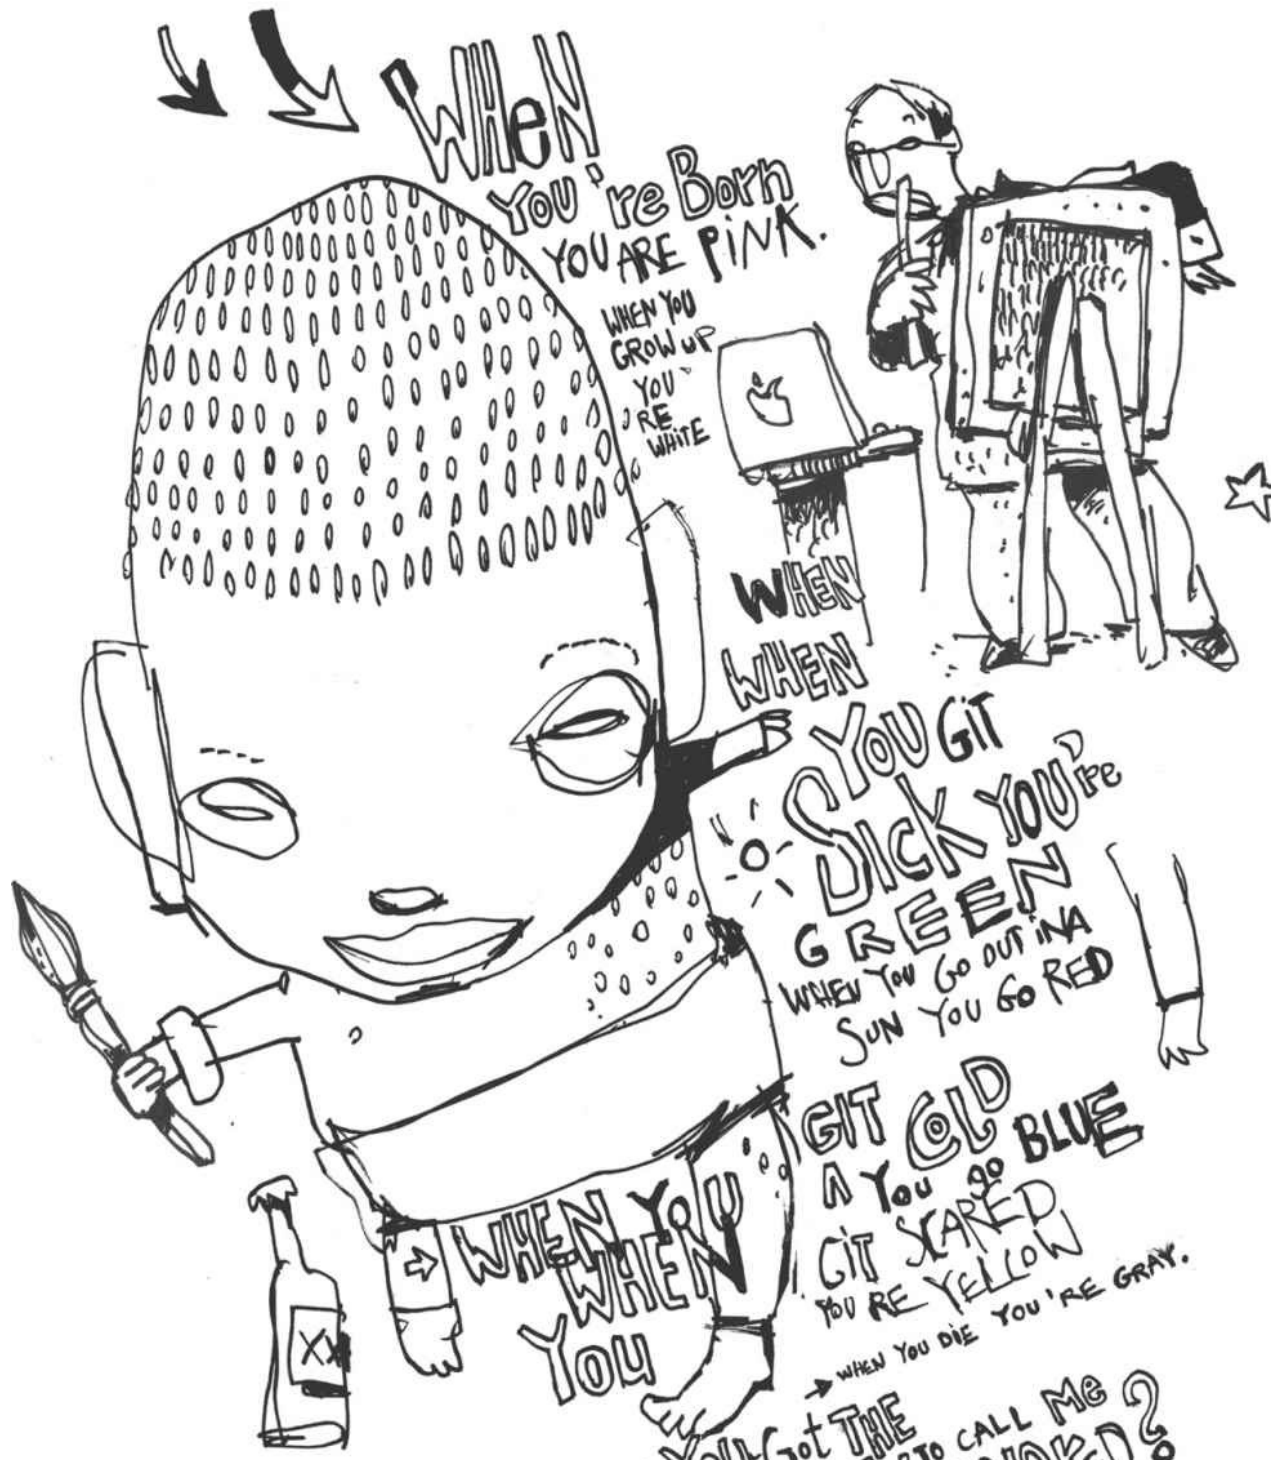 WHEN
YOU're Born
YOU ARE PINK.
WHEN YOU
GROW UP
YOU'
RE
WHITE
WHEN
WHEN
YOU GIT
SICK YOU're
GREEN
WHEN YOU GO OUT IN A
SUN YOU GO RED
GIT COLD
A YOU go BLUE
GIT SCARED
YOU RE YELLOW
WHEN YOU DIE YOU'RE GRAY.
WHEN YOU
WHEN
YOU
XX
YOU Got THE
TO CALL Me
?